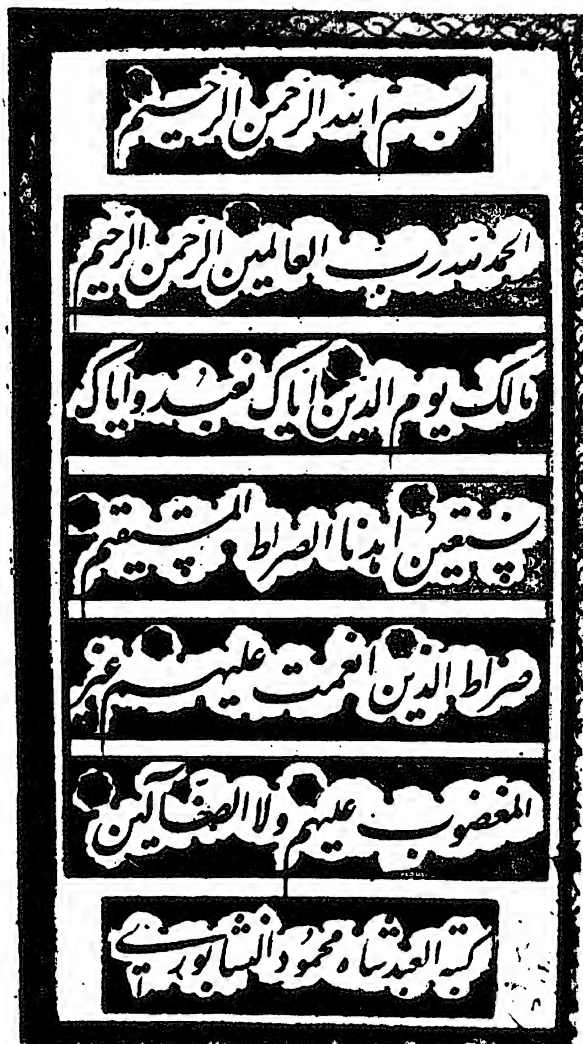 بسم الله الرحمن الرحيم
الحمد لله رب العالمين الرحمن الرحيم
مالك يوم الدين اياك نعبد و اياك
نستعين اهدنا الصراط المستقيم
صراط الذين انعمت عليهم غير
المغضوب عليهم ولا الضآلين
كتبه العبد شاه محمود النيشابوري